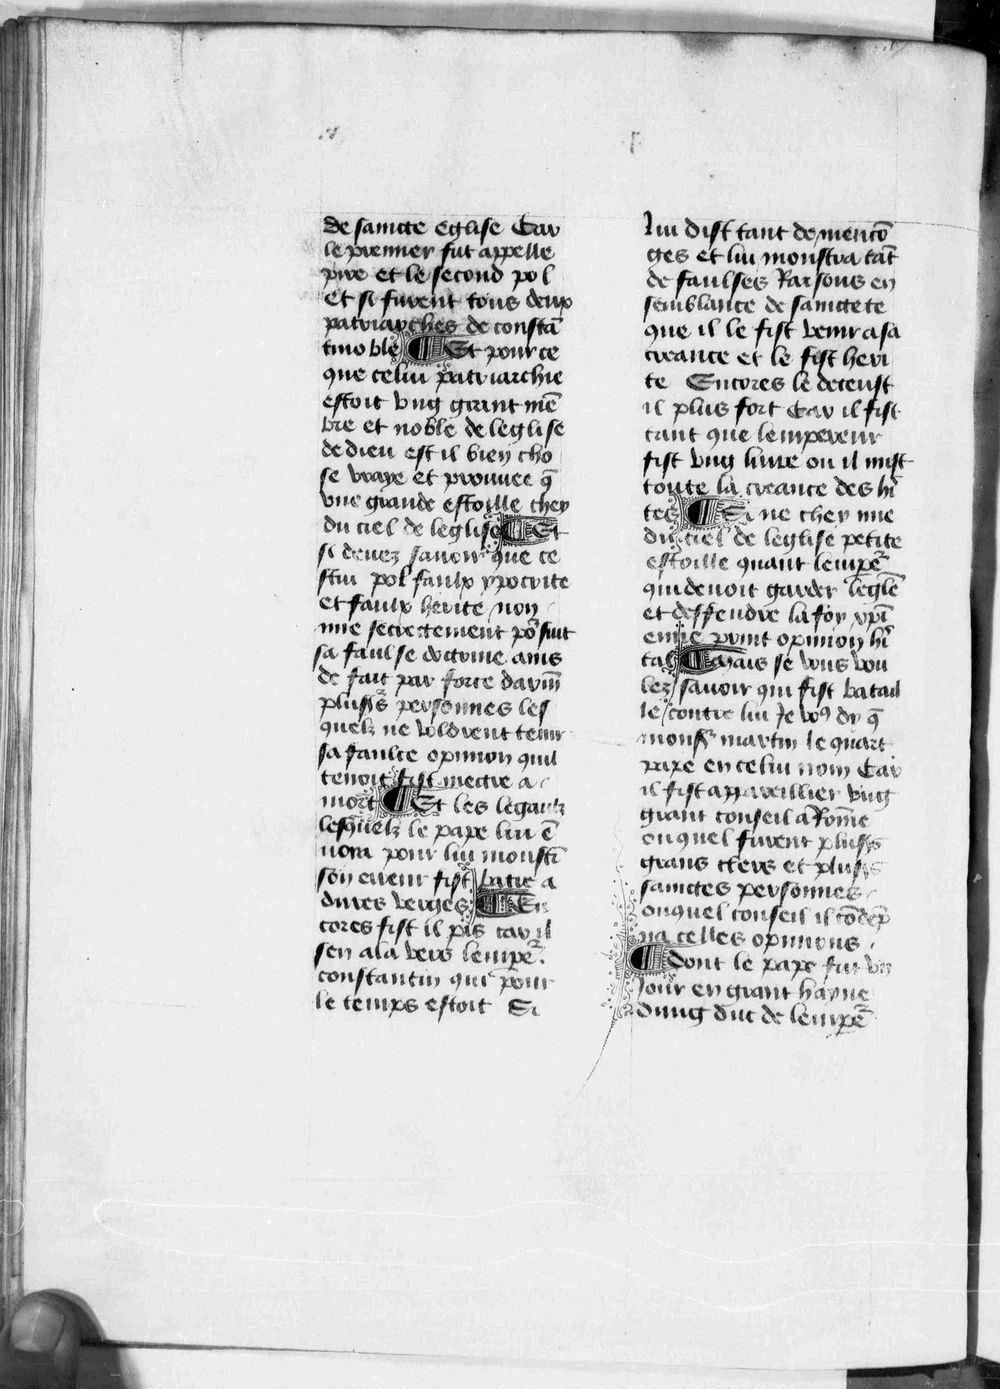 de saincte eglise Car
le premier fut appelle
pire et le second pol
et si furent tous deux
patriarches de constā
tinoble ¶ Et pour ce
que celui patriarchie
estoit vng grant mē
bre et noble de leglise
de dieu est il bien cho
se vraye et prouuee q̄
vne grande estoille chey
du ciel de leglise ¶ Et
si deuez sauoir que ce
stui pol faulx ypocrite
et faulx herite non
mie secretement po᷑suit
sa faulse doctrine mais
de fait par force darm̄
pluss᷑s personnes les
quelz ne voldrent tenir
sa faulce opinion quil
tenoit fist mectre a
mort ¶ Et les legaulz
lesquelz le pape lui ē
uoia pour lui monstr᷑
son erreur fist batre a
dures verges ¶ En
cores fist il pis car il
sen ala vers lemper᷑
constantin qui pour
le temps estoit Si
lui dist tant de mencō
ges et lui monstra tāt
de faulses Raisons en
semblance de sainctete
que il le fist venir a sa
creance et le fist heri
te Encores le deceust
il plus fort Car il fist
tant que lempereur
fist vng liure ou il mist
toute la creance des hi᷑
tes ¶ Si ne chey mie
du ciel de leglise petite
estoille quant lemper᷑
qui deuoit garder leglē
et deffendre la foy xpī
enne print opinion hi᷑
tal ¶ Mais se vous vou
lez sauoir qui fist batail
le contre lui Je voꝰ dy q̄
monsr᷑ martin le quart
pape en celui nom Car
il fist appareillier vng
grant conseil a Rōme
ouquel furent pluss᷑s
grans clers et pluss᷑s
sainctes personnes
ouquel conseil il cōdēp
na celles opinions
¶ dont le pape fut vn
Jour en grant hayne
dung duc de lemper᷑